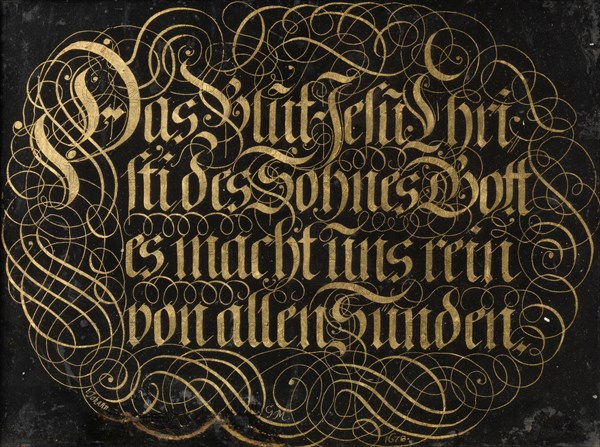 Das Blut Jesu Chri-
sti des Sohnes Gott
es macht uns rein
von allen Sunden.
GM